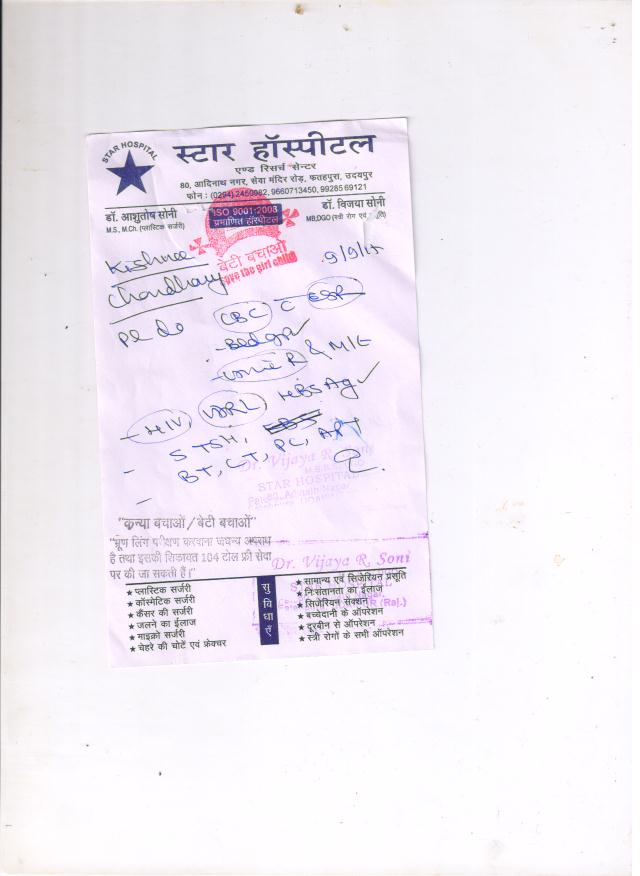 STAR HOSPITAL
स्टार हॉस्पीटल
एण्ड रिसर्च सेन्टर
80, आदिनाथ नगर, सेवा मंदिर रोड़, फतहपुरा, उदयपुर
फोन : (0294) 2450982, 9660713450, 9928569121
डॉ. आशुतोष सोनी
M.S., M.Ch. (प्लास्टिक सर्जरी)
ISO 9001:2008
प्रमाणित हॉस्पीटल
डॉ. विजया सोनी
MB,DGO (स्त्री रोग एवं
बेटी बचाओ
save the girl child
Krishna
Choudhary
Pl do CBC C ESR
R & M/E
- HIV, VDRL, HBSAg
- S TSH,
BT, CT, PC,
Dr. Vijaya R. Soni
STAR HOSPITAL
"कन्या बचाओं/बेटी बचाओं"
"भ्रूण लिंग परीक्षण करवाना जघन्य अपराध
है तथा इसकी शिकायत 104 टोल फ्री सेवा
पर की जा सकती हैं।"
Dr. Vijaya R. Soni
सुविधाएँ
★ प्लास्टिक सर्जरी
★ कॉस्मेटिक सर्जरी
★ कैंसर की सर्जरी
★ जलने का ईलाज
★ माइक्रो सर्जरी
★ चेहरे की चोटें एवं फ्रेक्चर
★ सामान्य एवं सिजेरियन प्रसूति
★ निःसंतानता का ईलाज
★ सिजेरियन सेक्शन
★ बच्चेदानी के ऑपरेशन
★ दूरबीन से ऑपरेशन
★ स्त्री रोगों के सभी ऑपरेशन
(Raj.)